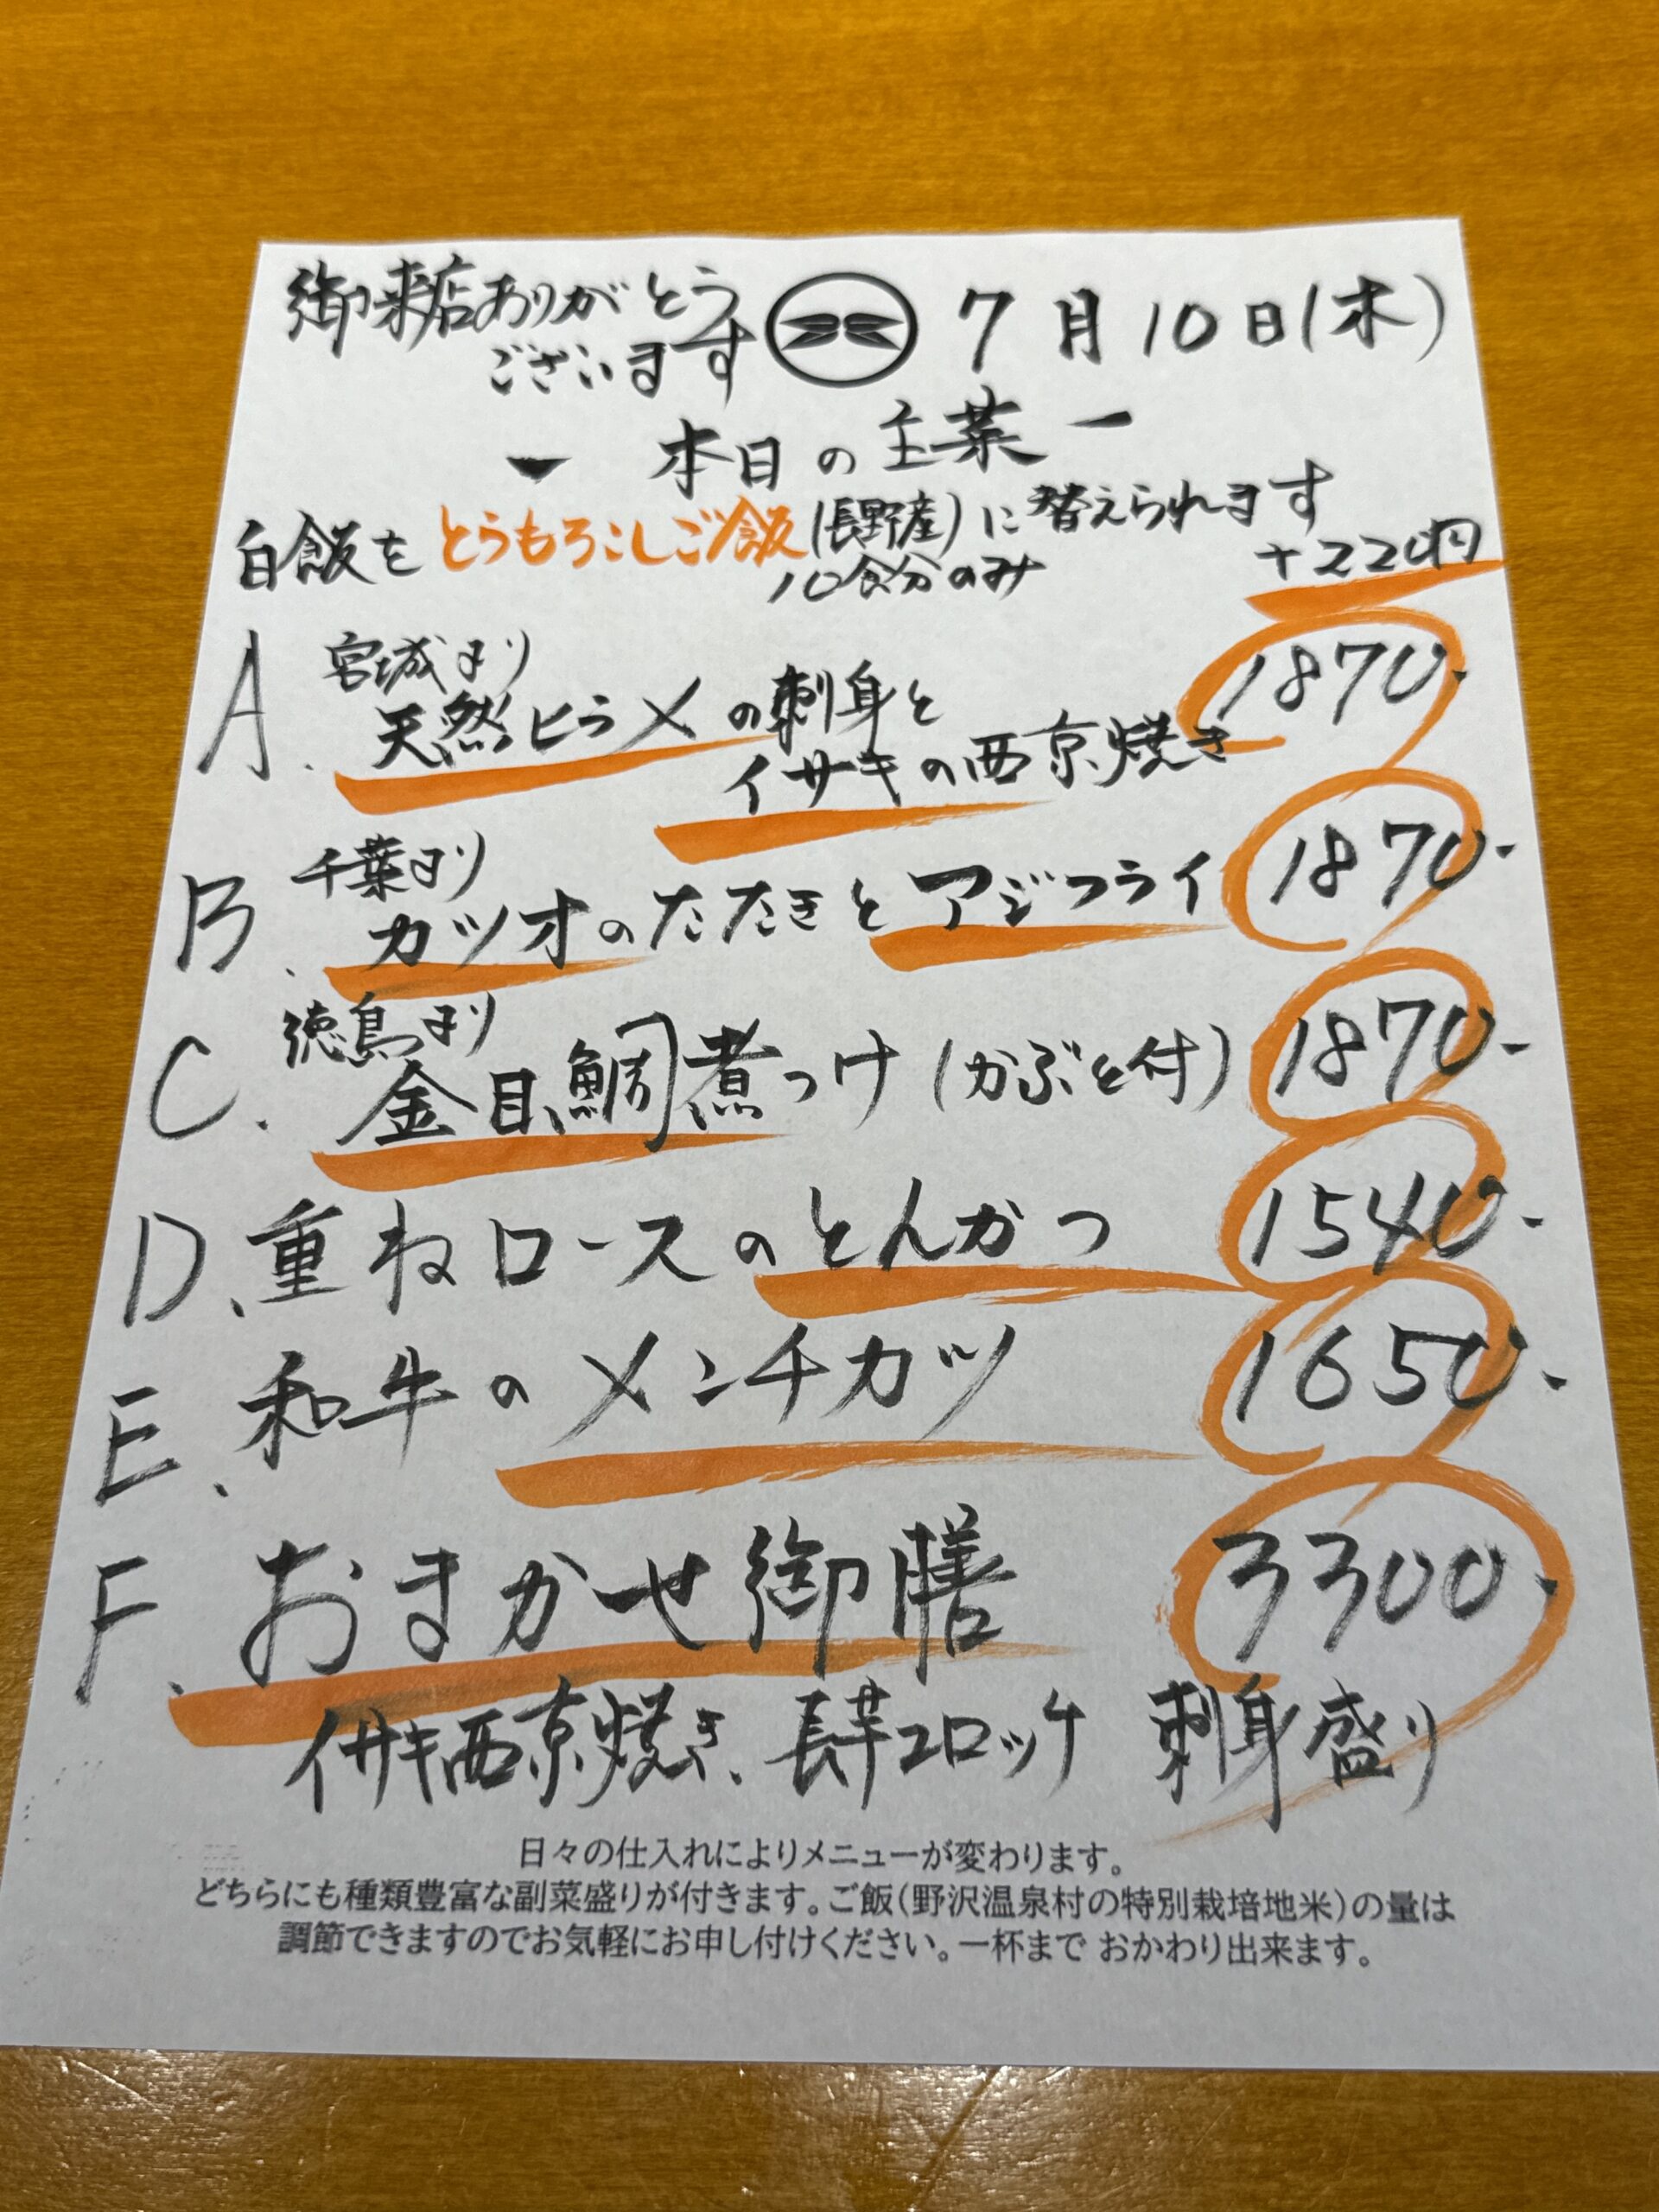 御来店ありがとう
ございます
7月10日(木)
ー 本日の主菜 ー
白飯をとうもろこしご飯(長野産)に替えられます
10食分のみ
+220円
A. 宮城より
天然ヒラメの刺身と
イサキの西京焼き
1870.
B. 千葉より
カツオのたたきとアジフライ 1870.
C. 徳島より
金目鯛煮つけ(かぶと付) 1870.
D. 重ねロースのとんかつ 1540.
E. 和牛のメンチカツ 1650.
F. おまかせ御膳 3300.
イサキ西京焼き、長芋コロッケ 刺身盛り
日々の仕入れによりメニューが変わります。
どちらにも種類豊富な副菜盛りが付きます。ご飯(野沢温泉村の特別栽培地米)の量は
調節できますのでお気軽にお申し付けください。一杯まで おかわり出来ます。